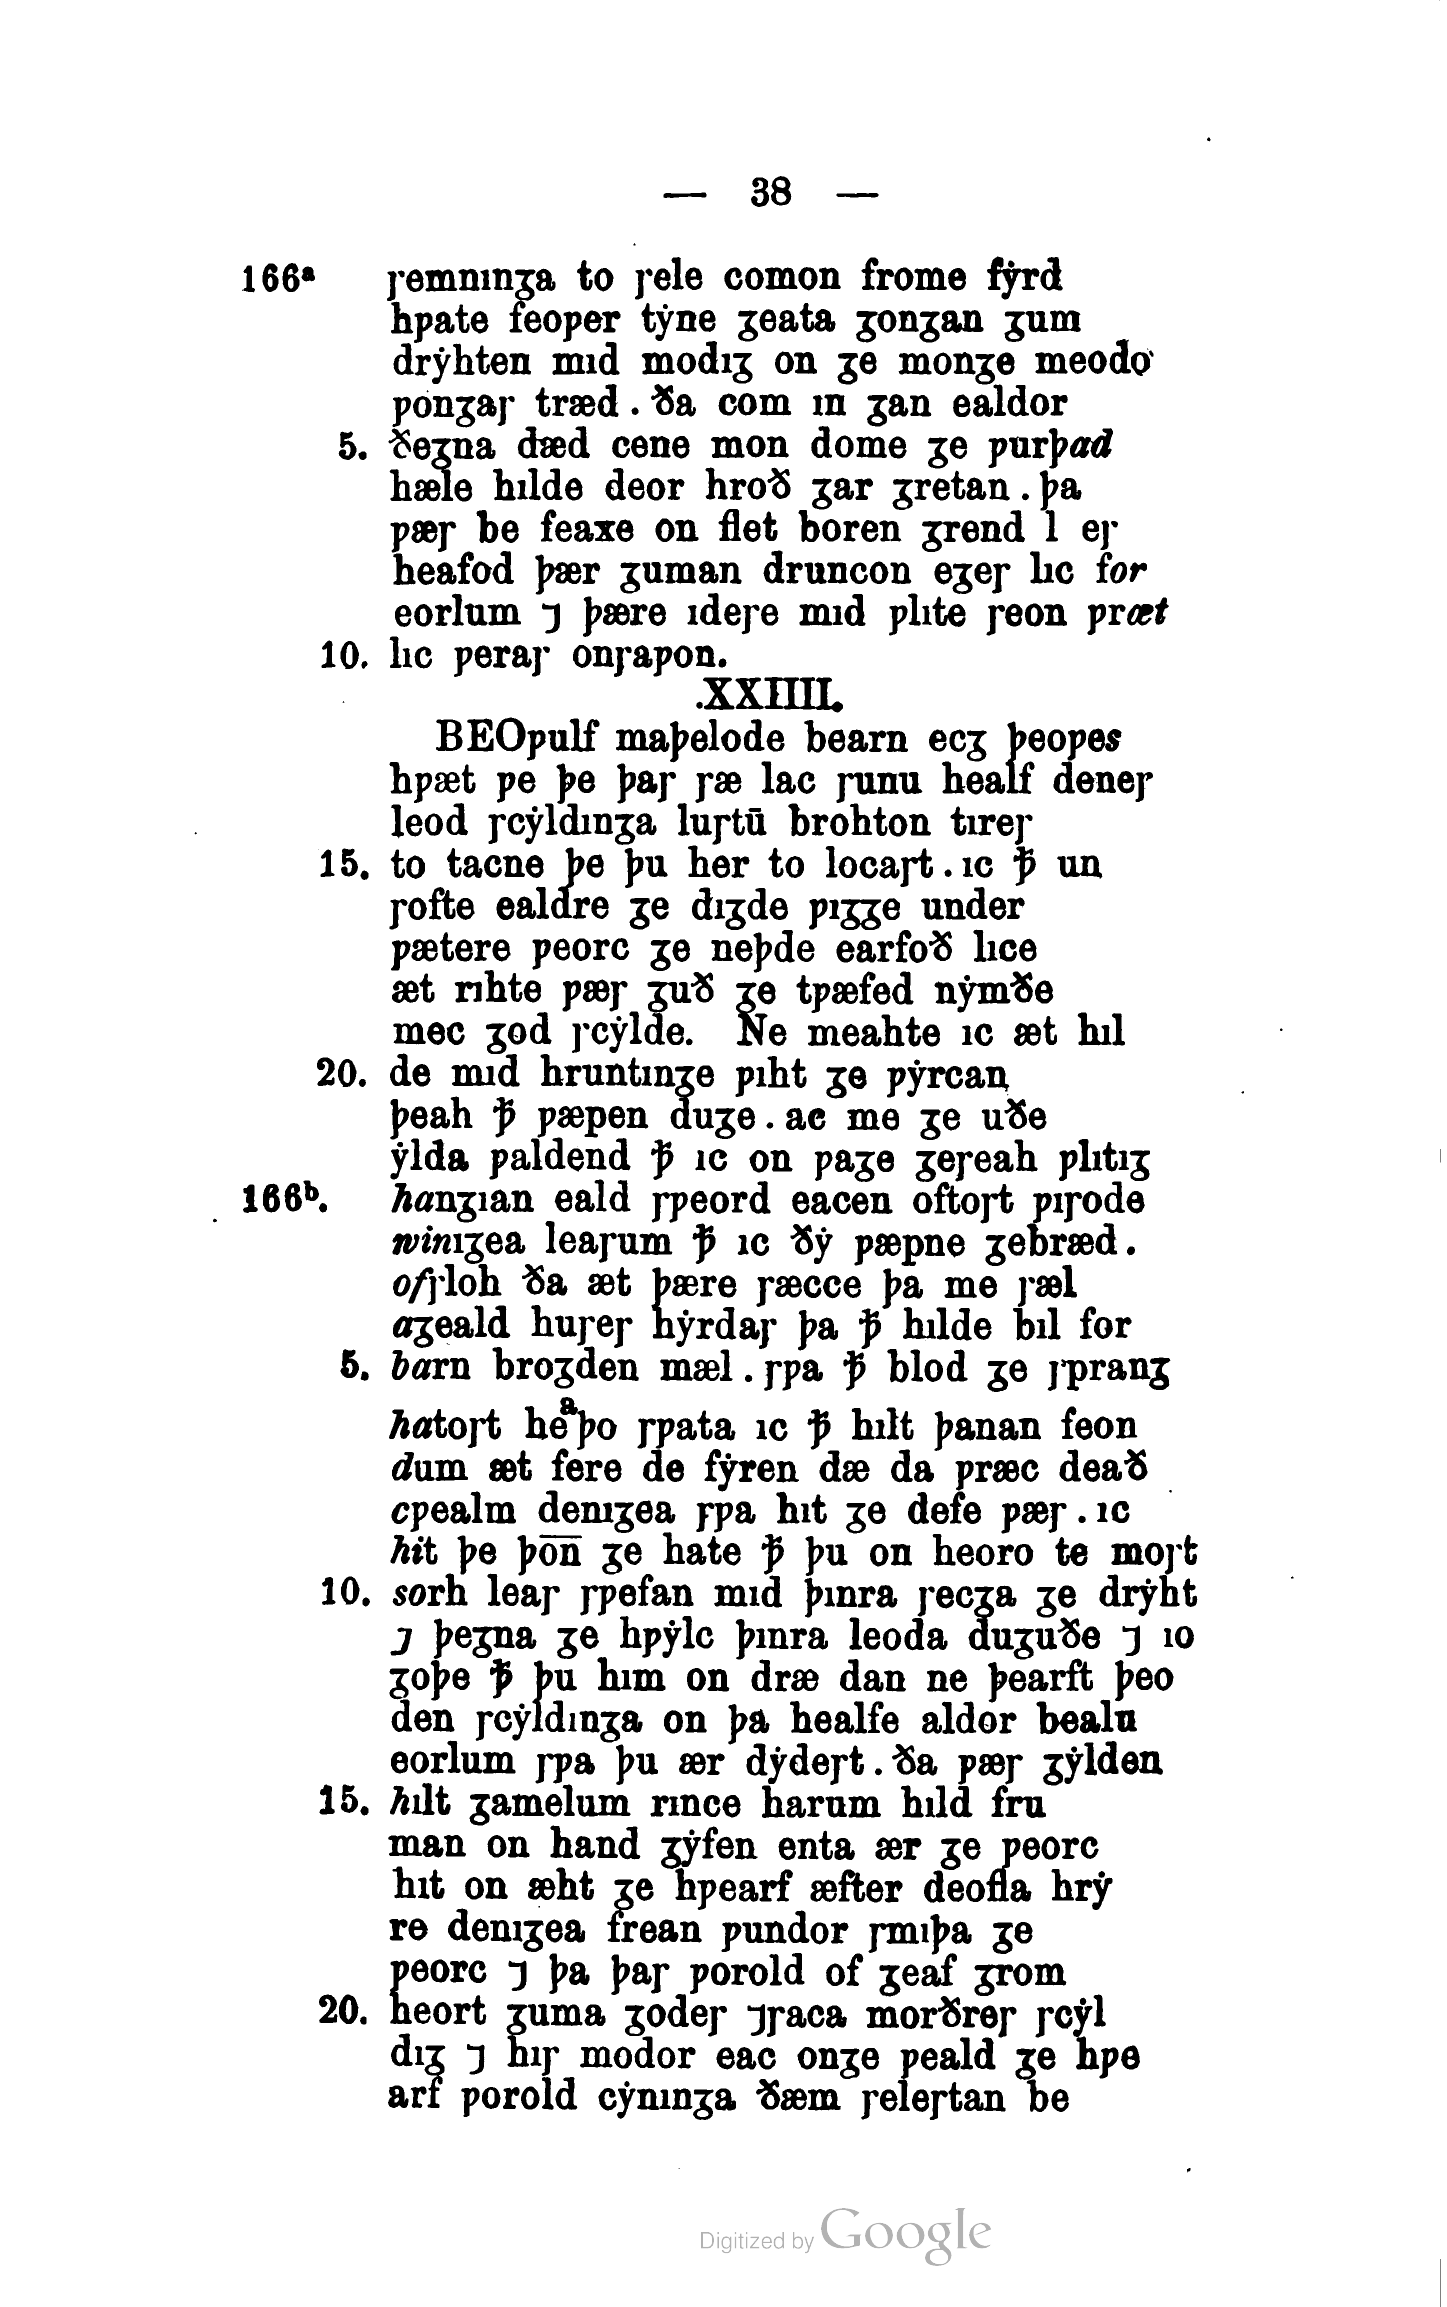 — 38 —
166ª ꞅemnınʒa to ꞅele comon frome fẏrd
hƿate feoƿer tẏne ʒeata ʒonʒan ʒum
drẏhten mıd modıʒ on ʒe monʒe meodo
ƿonʒaꞅ træd . ða com ın ʒan ealdor
5. ðeʒna dæd cene mon dome ʒe ƿurþad
hæle hılde deor hroð ʒar ʒretan . þa
ƿæꞅ be feaxe on flet boren ʒrend l eꞅ
heafod þær ʒuman druncon eʒeꞅ lıc for
eorlum ⁊ þære ıdeꞅe mıd ƿlıte ꞅeon ƿræt
10. lıc ƿeraꞅ onꞅaƿon.
.XXIIII.
BEOƿulf maþelode bearn ecʒ þeoƿes
hƿæt ƿe þe þaꞅ ꞅæ lac ꞅunu healf deneꞅ
leod ꞅcẏldınʒa luꞅtū brohton tıreꞅ
15. to tacne þe þu her to locaꞅt . ıc ꝥ un
ꞅofte ealdre ʒe dıʒde ƿıʒʒe under
ƿætere ƿeorc ʒe neþde earfoð lıce
æt rıhte ƿæꞅ ʒuð ʒe tƿæfed nẏmðe
mec ʒod ꞅcẏlde. Ne meahte ıc æt hıl
20. de mıd hruntınʒe ƿıht ʒe ƿẏrcan
þeah ꝥ ƿæƿen duʒe . ac me ʒe uðe
ẏlda ƿaldend ꝥ ıc on ƿaʒe ʒeꞅeah ƿlıtıʒ
166ᵇ. hanʒıan eald ꞅƿeord eacen oftoꞅt ƿıꞅode
winıʒea leaꞅum ꝥ ıc ðẏ ƿæƿne ʒebræd .
ofꞅloh ða æt þære ꞅæcce þa me ꞅæl
aʒeald huꞅeꞅ hẏrdaꞅ þa ꝥ hılde bıl for
5. barn broʒden mæl . ꞅƿa ꝥ blod ʒe ꞅƿranʒ
hatoꞅt heᵃþo ꞅƿata ıc ꝥ hılt þanan feon
dum æt fere de fẏren dæ da ƿræc deað
cƿealm denıʒea ꞅƿa hıt ʒe defe ƿæꞅ . ıc
hit þe þo̅n̅ ʒe hate ꝥ þu on heoro te moꞅt
10. sorh leaꞅ ꞅƿefan mıd þınra ꞅecʒa ʒe drẏht
⁊ þeʒna ʒe hƿẏlc þınra leoda duʒuðe ⁊ ıo
ʒoþe ꝥ þu hım on dræ dan ne þearft þeo
den ꞅcẏldınʒa on þa healfe aldor bealu
eorlum ꞅƿa þu ær dẏdeꞅt . ða ƿæꞅ ʒẏlden
15. hılt ʒamelum rınce harum hıld fru
man on hand ʒẏfen enta ær ʒe ƿeorc
hıt on æht ʒe hƿearf æfter deofla hrẏ
re denıʒea frean ƿundor ꞅmıþa ʒe
ƿeorc ⁊ þa þaꞅ ƿorold of ʒeaf ʒrom
20. heort ʒuma ʒodeꞅ ⁊ꞅaca morðreꞅ ꞅcẏl
dıʒ ⁊ hıꞅ modor eac onʒe ƿeald ʒe hƿe
arf ƿorold cẏnınʒa ðæm ꞅeleꞅtan be
Digitized by Google